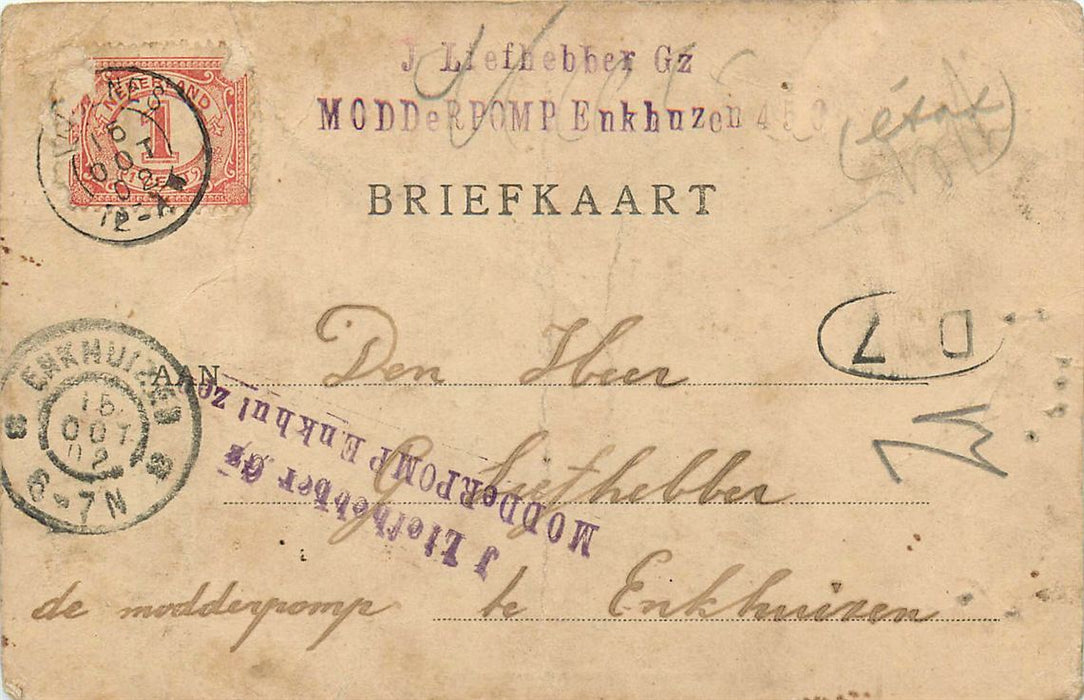 J Liefhebber Gz
MODDeRPOMP Enkhuzen 450
(étox)
NEDERLAND
1
OCT
02
12-1
BRIEFKAART
D 7
AAN Den Heer
G Liefhebber
de modderpomp te Enkhuizen
ENKHUIZEN
15
OCT
02
6-7N
J Liefhebber Gz
MODDeRPOMP Enkhuize